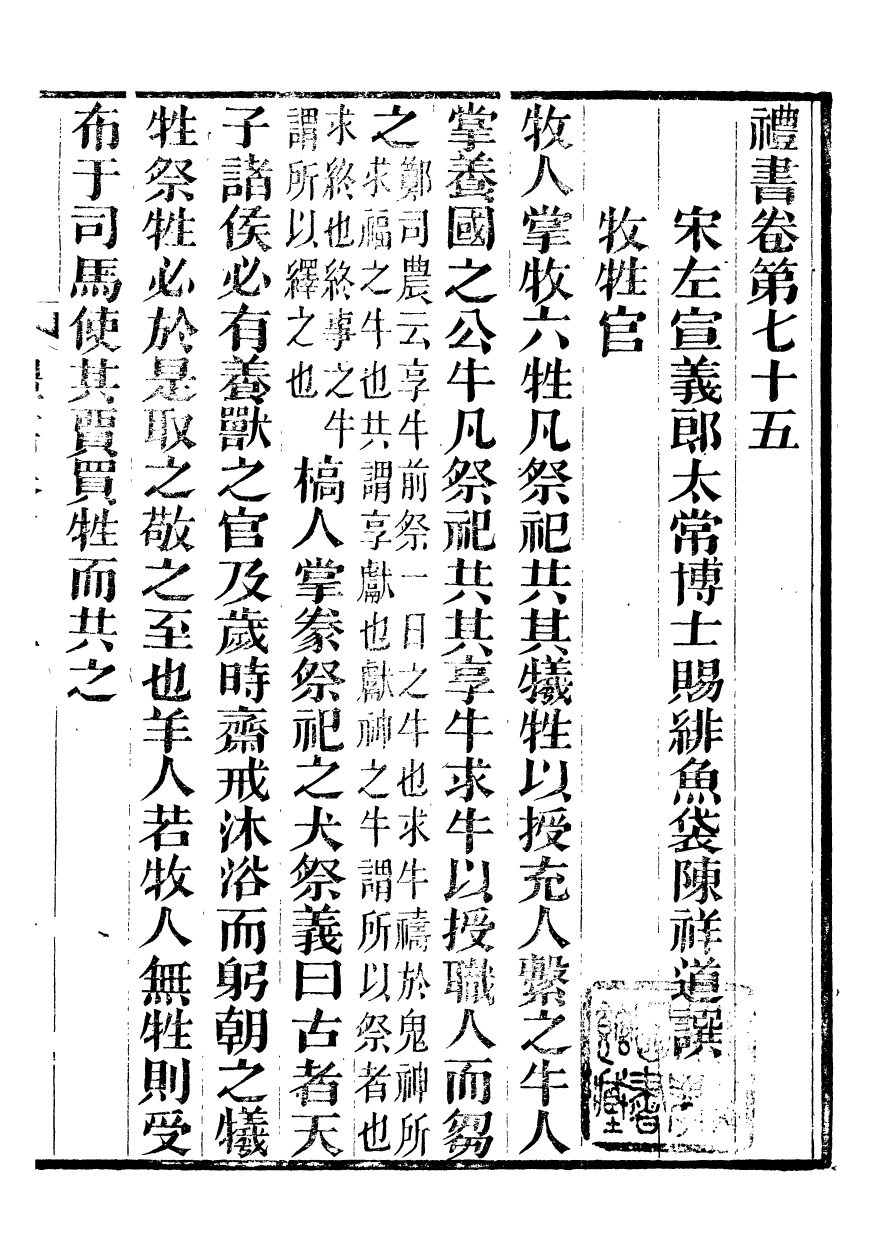 禮書卷第七十五
宋左宣義郎太常博士賜緋魚袋陳祥道譔
牧牲官
牧人掌牧六牲凡祭祀共其犧牲以授充人繫之牛人
掌養國之公牛凡祭祀共其享牛求牛以授職人而芻
之鄭司農云享牛前祭一日之牛也求牛禱於鬼神所
求福之牛也共謂享獻也獻神之牛謂所以祭者也
求終也終事之牛
謂所以繹之也
槁人掌豢祭祀之犬祭義曰古者天
子諸侯必有養獸之官及歲時齋戒沐浴而躬朝之犧
牲祭牲必於是取之敬之至也羊人若牧人無牲則受
布于司馬使其賈買牲而共之